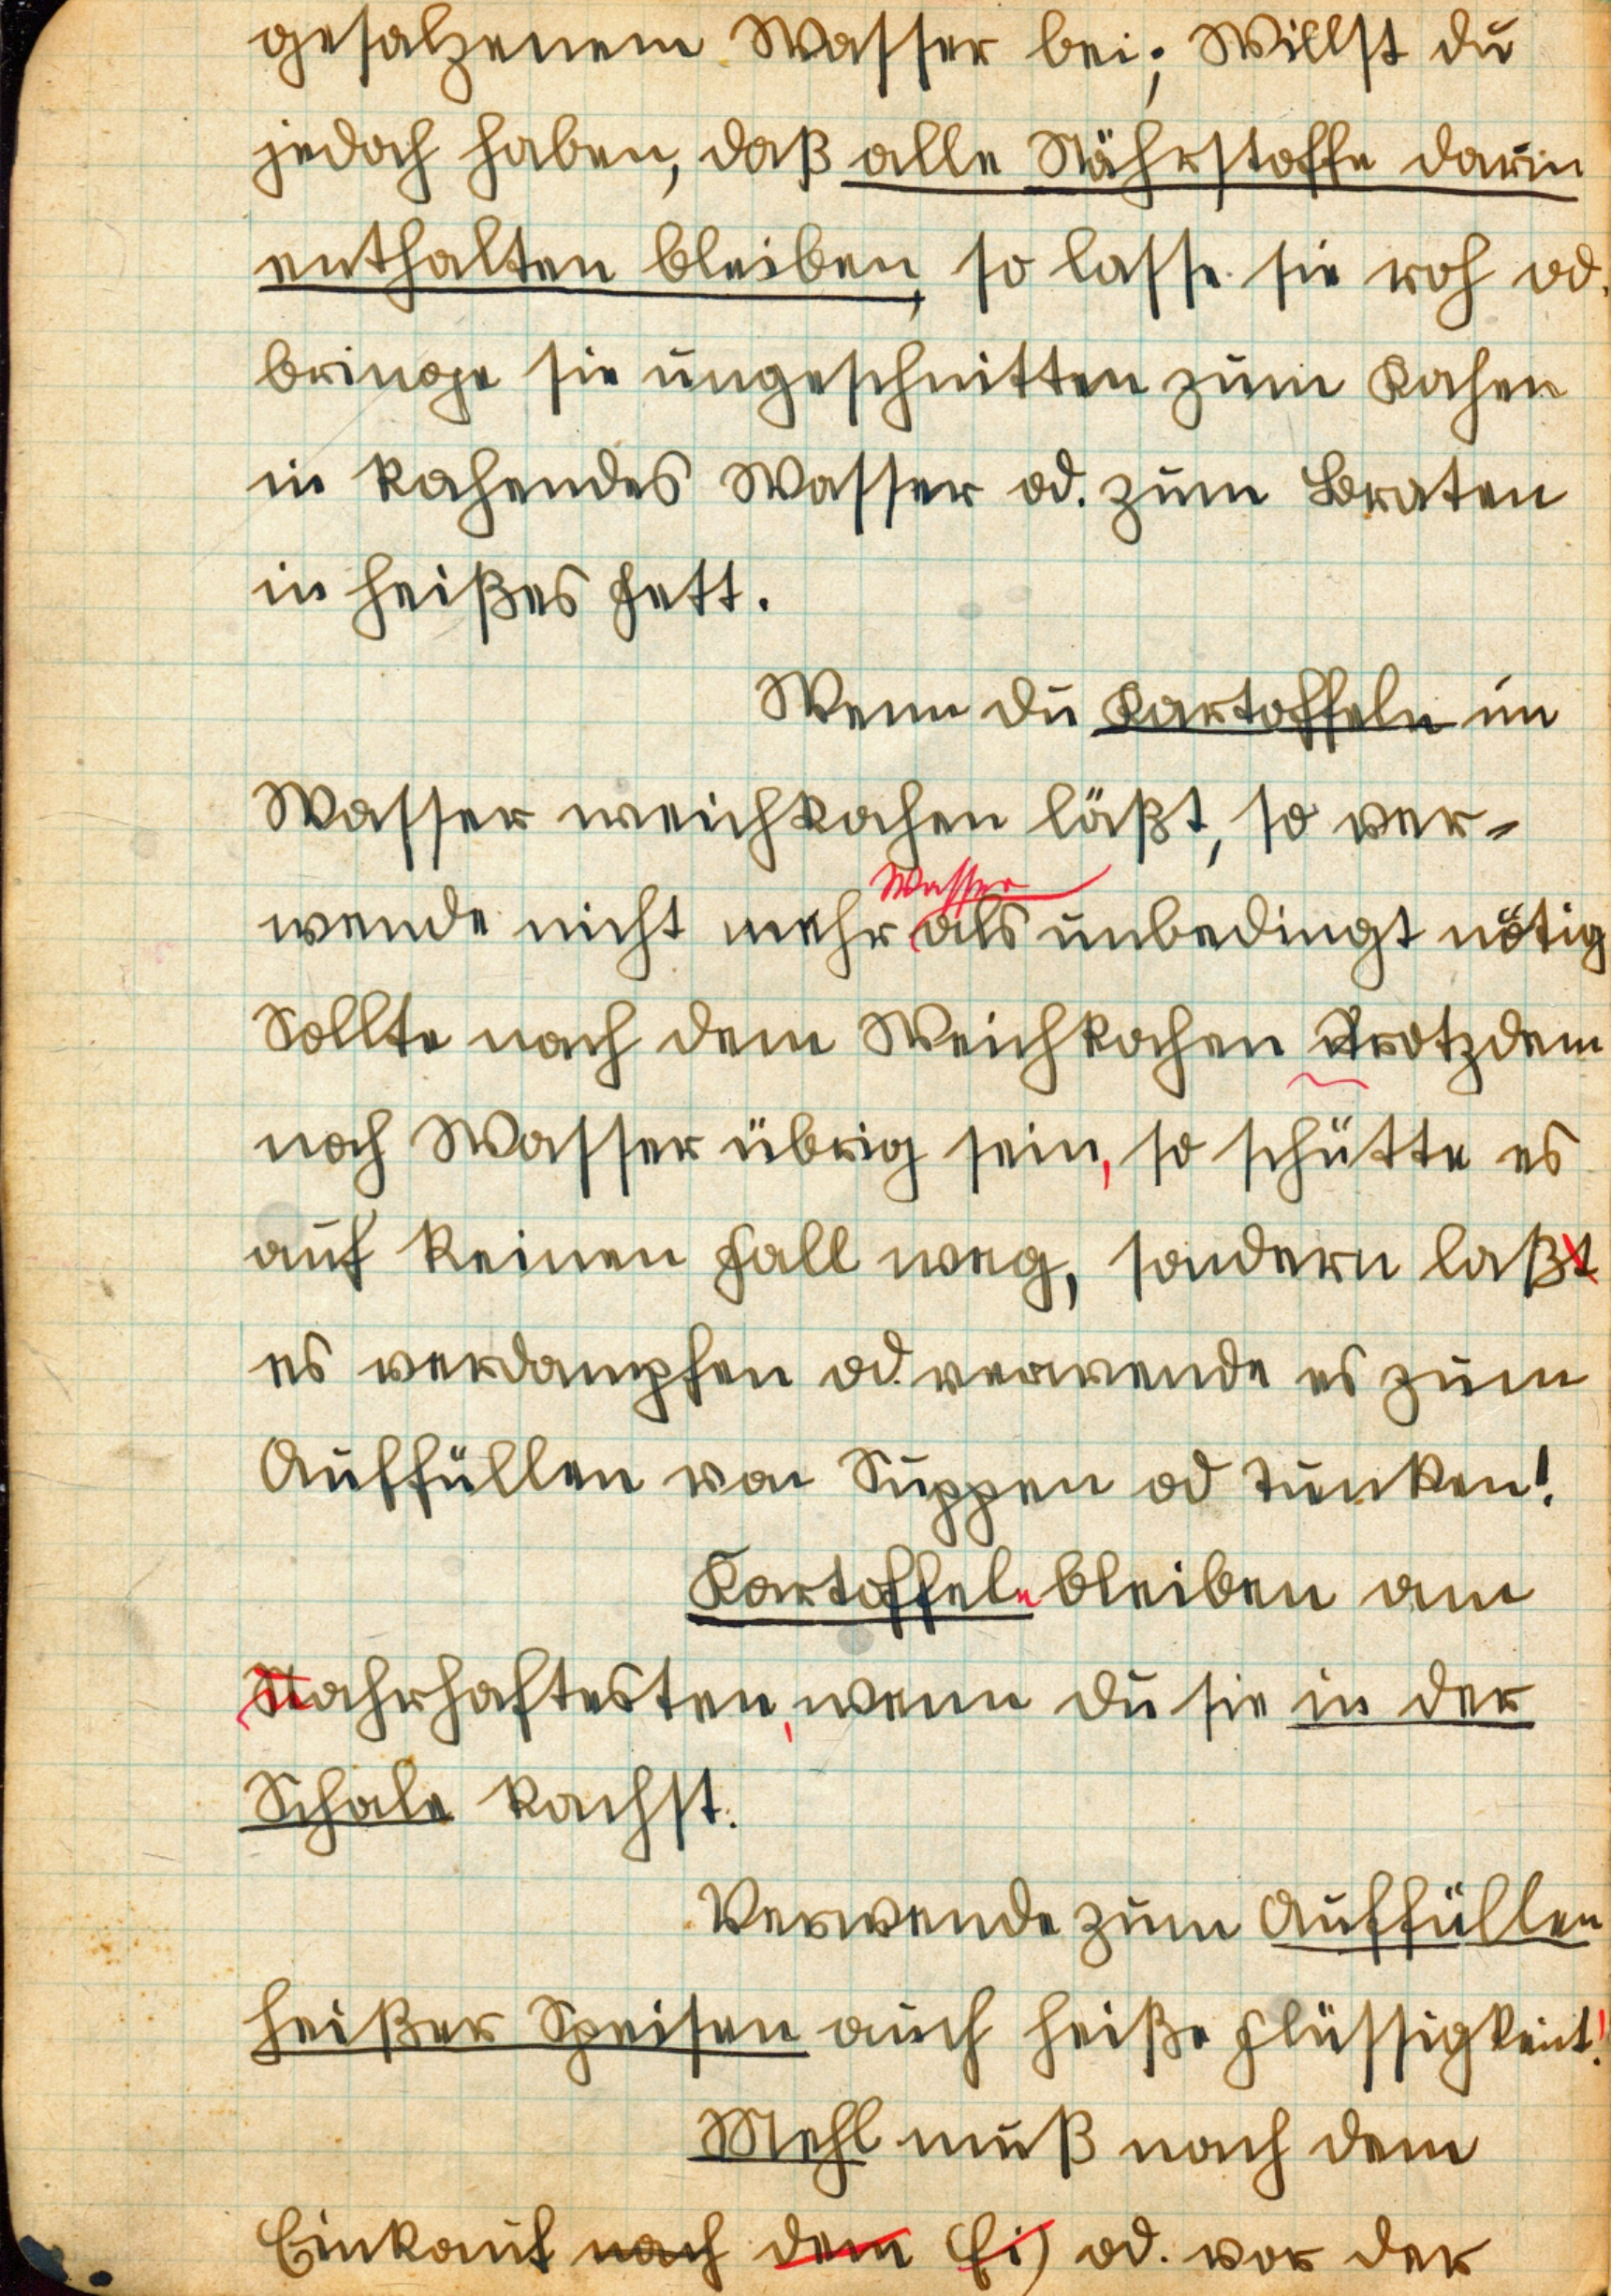 gesalzenem Wasser bei; Willst du
jedoch haben, daß alle Nährstoffe darin
enthalten bleiben, so lasse sie roh od.
bringe sie ungeschnitten zum Kochen
in kochendes Wasser od. zum Braten
in heißes Fett.
Wenn du Kartoffeln im
Wasser weichkochen läßt, so ver-
Wasser
wende nicht mehr als unbedingt nötig
Sollte nach dem Weichkochen trotzdem
noch Wasser übrig sein, so schütte es
auf keinen Fall weg, sondern laßt
es verdampfen od. verwende es zum
Auffüllen von Suppen od Tunken!
Kartoffeln bleiben am
Nahrhaftesten, wenn du sie in der
Schale kochst.
Verwende zum Auffüllen
heißer Speisen auch heiße Flüssigkeit!
Mehl muß nach dem
Einkauf nach dem Ei) od. vor der